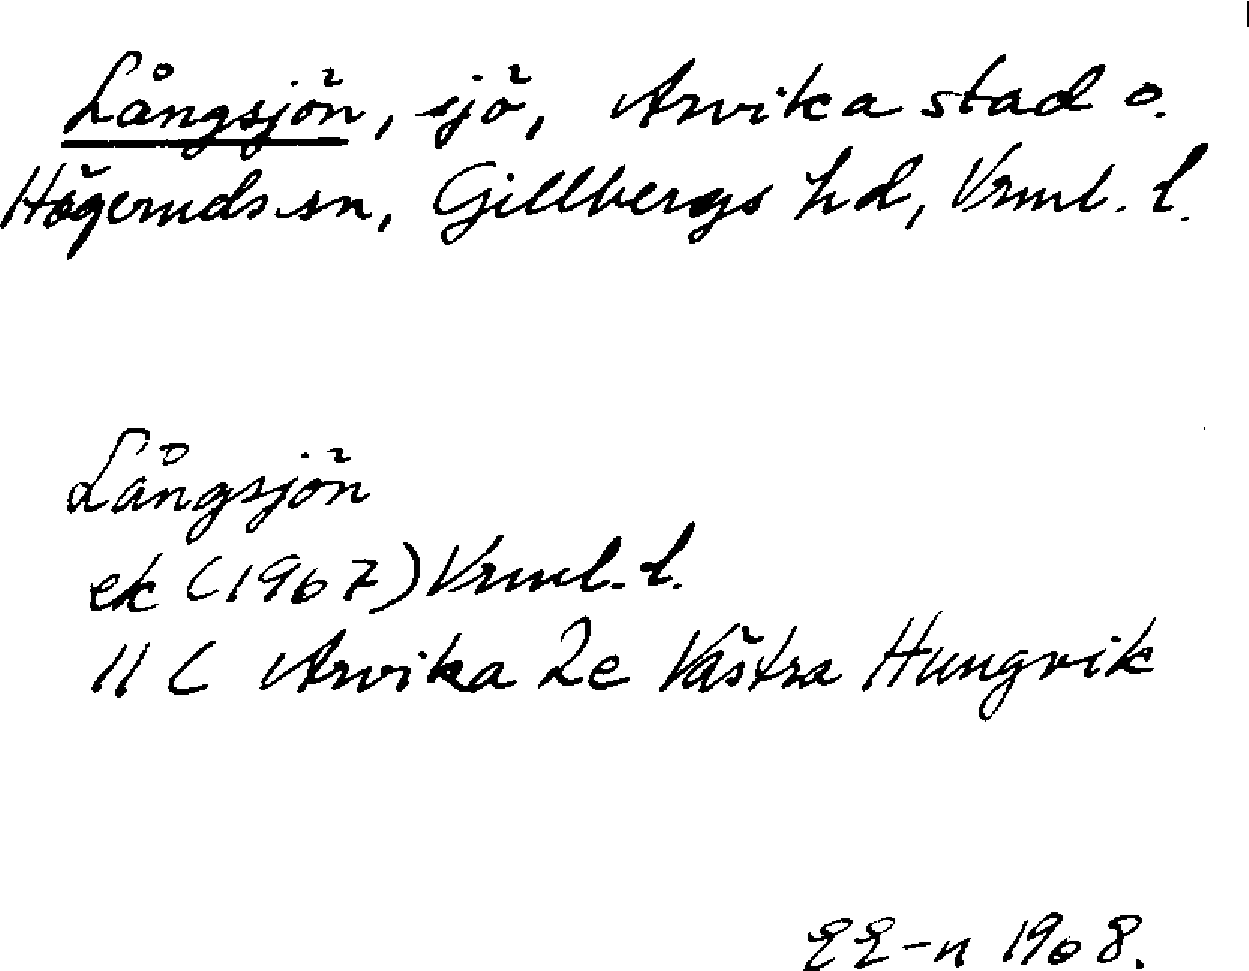 Långsjön, sjö, Arvika stad o.
Högeruds sn, Gillbergs hd, Vrml. l.
Långsjön
ek (1967) Vrml. l.
11 C Arvika 2e Västra Hungvik
EE-n 1968.